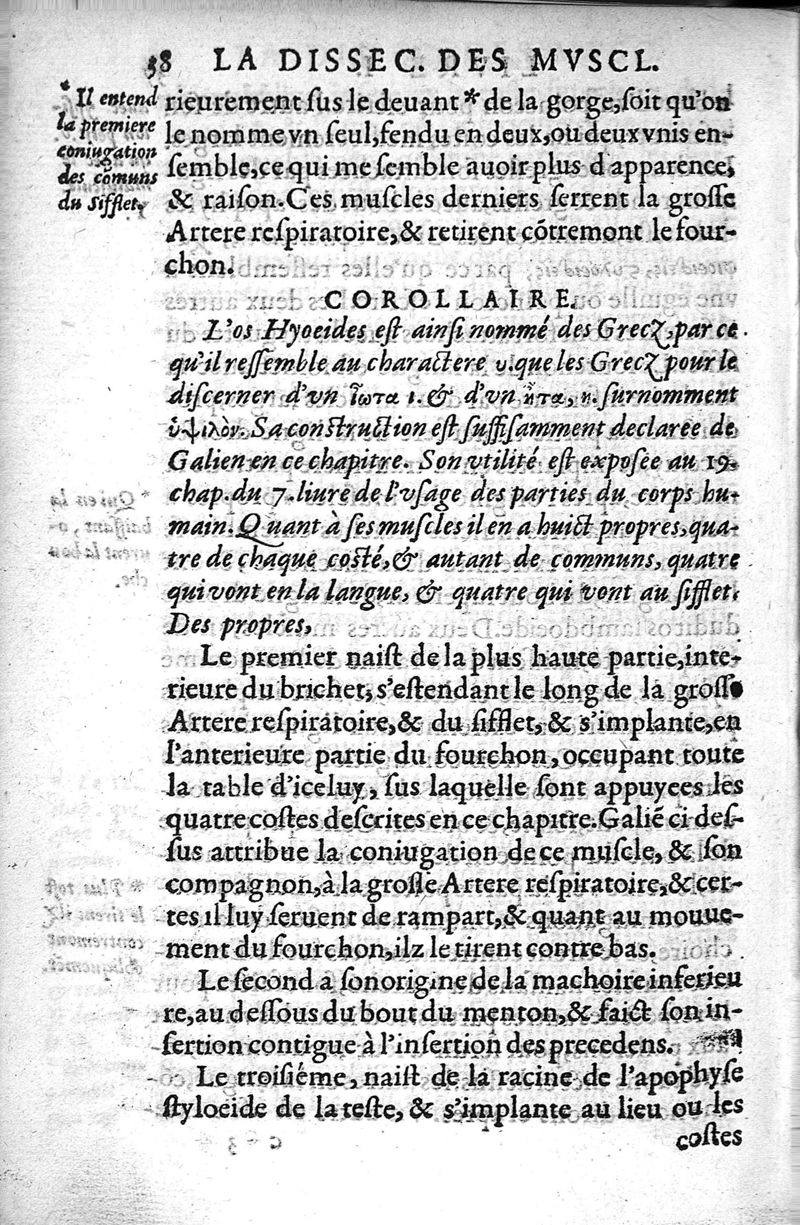 38 LA DISSEC. DES MVSCL.
* Il entend
la premiere
coniugation
des cõmuns
du Sifflet,
rieurement ſus le deuant * de la gorge, ſoit qu'on
le nomme vn ſeul, fendu en deux, ou deux vnis en-
ſemble, ce qui me ſemble auoir plus d'apparence,
& raiſon. Ces muſcles derniers ſerrent la groſſe
Artere reſpiratoire, & retirent cõtremont le four-
chon.
COROLLAIRE.
L'os Hyoeides eſt ainſi nommé des Grecz, par ce
qu'il reſſemble au charactere υ. que les Grecz pour le
diſcerner d'vn ἰῶτα ι. & d'vn ἦτα, η. ſurnomment
ὑψιλὸν. Sa conſtruction eſt ſuffiſamment declarée de
Galien en ce chapitre. Son vtilité eſt expoſée au 19.
chap. du 7. liure de l'vſage des parties du corps hu-
main. Quant à ſes muſcles il en a huict propres, qua-
tre de chaque coſté, & autant de communs, quatre
qui vont en la langue, & quatre qui vont au ſifflet.
Des propres,
Le premier naiſt de la plus haute partie, inte-
rieure du brichet, s'eſtendant le long de la groſſe
Artere reſpiratoire, & du ſifflet, & s'implante, en
l'anterieure partie du fourchon, occupant toute
la table d'iceluy, ſus laquelle ſont appuyees les
quatre coſtes deſcrites en ce chapitre. Galiẽ ci deſ-
ſus attribue la coniugation de ce muſcle, & ſon
compagnon, à la groſſe Artere reſpiratoire, & cer-
tes il luy ſeruent de rampart, & quant au mouue-
ment du fourchon, ilz le tirent contre bas.
Le ſecond a ſon origine de la machoire inferieu
re, au deſſous du bout du menton, & faict ſon in-
ſertion contigue à l'inſertion des precedens.
Le troiſiéme, naiſt de la racine de l'apophyſe
ſtyloeide de la teſte, & s'implante au lieu ou les
coſtes